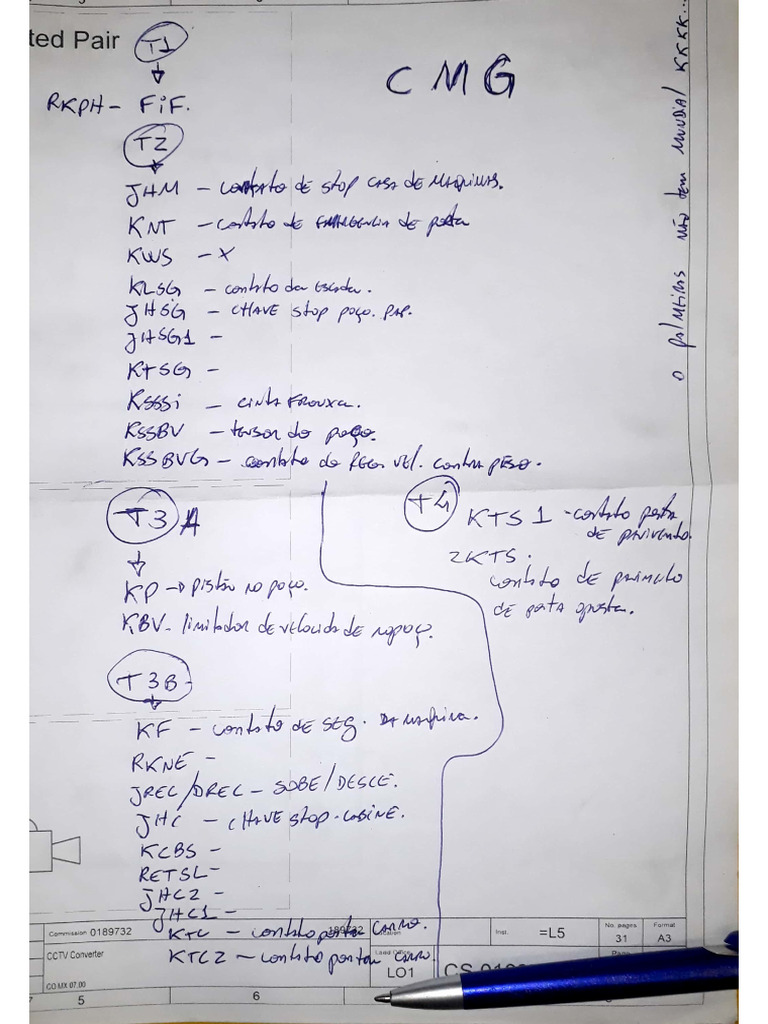 ted Pair
T1
CMG
RKPH - FiF.
T2
JHM - contato de stop casa de maquinas.
KNT - contato de emergencia de porta
KWS - X
KLSG - contato da escada.
JHSG - CHAVE stop poço. pap.
JHSG1 -
KTSG -
KSSSi - cinta frouxa.
KSSBV - tensor do poço.
KSSBVG - contato do reg. vel. contra peso.
T3A
KP -> pistão no poço.
KBV - limitador de velocidade no poço.
T4
KTS 1 - contato porta
de pavimento.
2KTS.
contato de
de porta oposta.
T3B
KF - contato de seg. da maquina.
RKNE -
JREC/DREC - SOBE/DESCE.
JHC - CHAVE STOP - CABINE.
KCBS -
RETSL -
JHC2 -
JHC1 -
KTC - contato porta carro.
KTC2 - contato porta carro.
o palmeiras não tem mundial KKKK...
Commission 0189732
CCTV Converter
CO MX 07.00
189732
Lead Office
LO1
Inst. =L5
No. pages
31
Format
A3
5
6